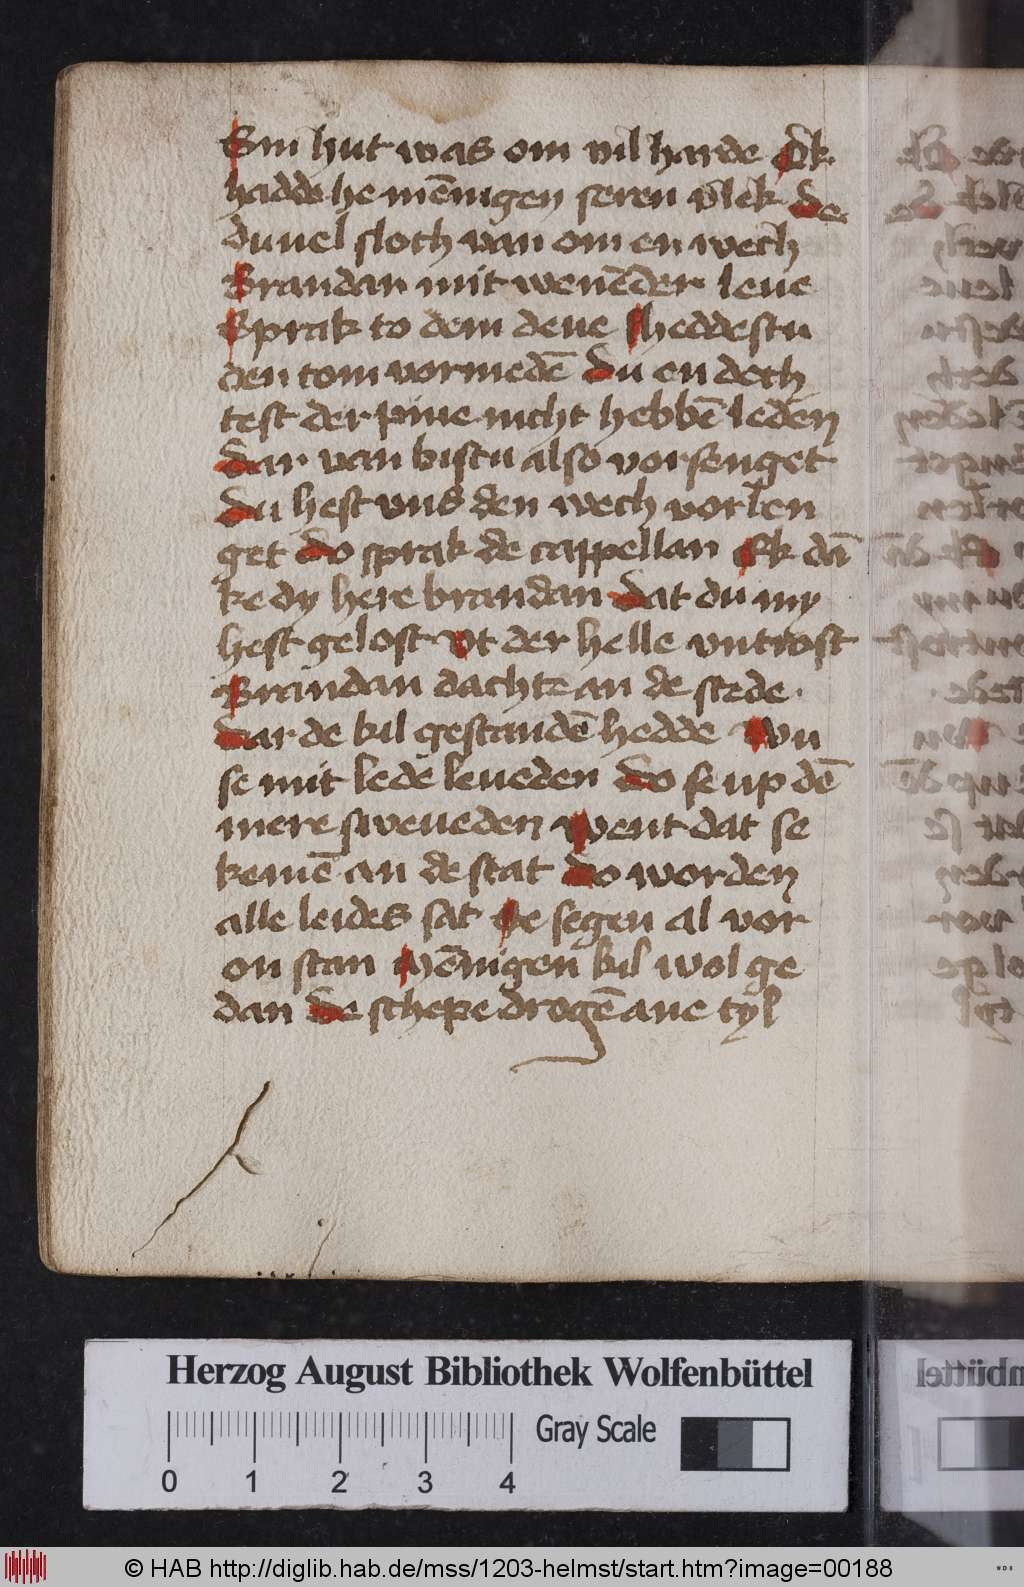 Sin hut was om vil harde Ok
hadde he mēnigen seren vlek De
duuel sloch van om en wech
Brandan mit wenēder leue
Sprak to dem deue Heddestu
den tom vormedē Du en doch
test der pine nicht hebbē leden
Dar van bistu also vorsenget
Du hest vns den wech vorlen
get Do sprak de cappellan Ik dā
ke dy here brandan Dat du my
hest gelost Vt der helle vntrost
Brandan dachte an de stede
Dar de kil gestandē hedde Wu
se mit lede leueden Do se up dē
mere sweueden Went dat se
kemē an de stat Do worden
alle leides sat Se segen al vor
on stan Mēnigen kil wol ge
dan De schepe drogē ane tyl
Herzog August Bibliothek Wolfenbüttel
0 1 2 3 4
Gray Scale
© HAB http://diglib.hab.de/mss/1203-helmst/start.htm?image=00188